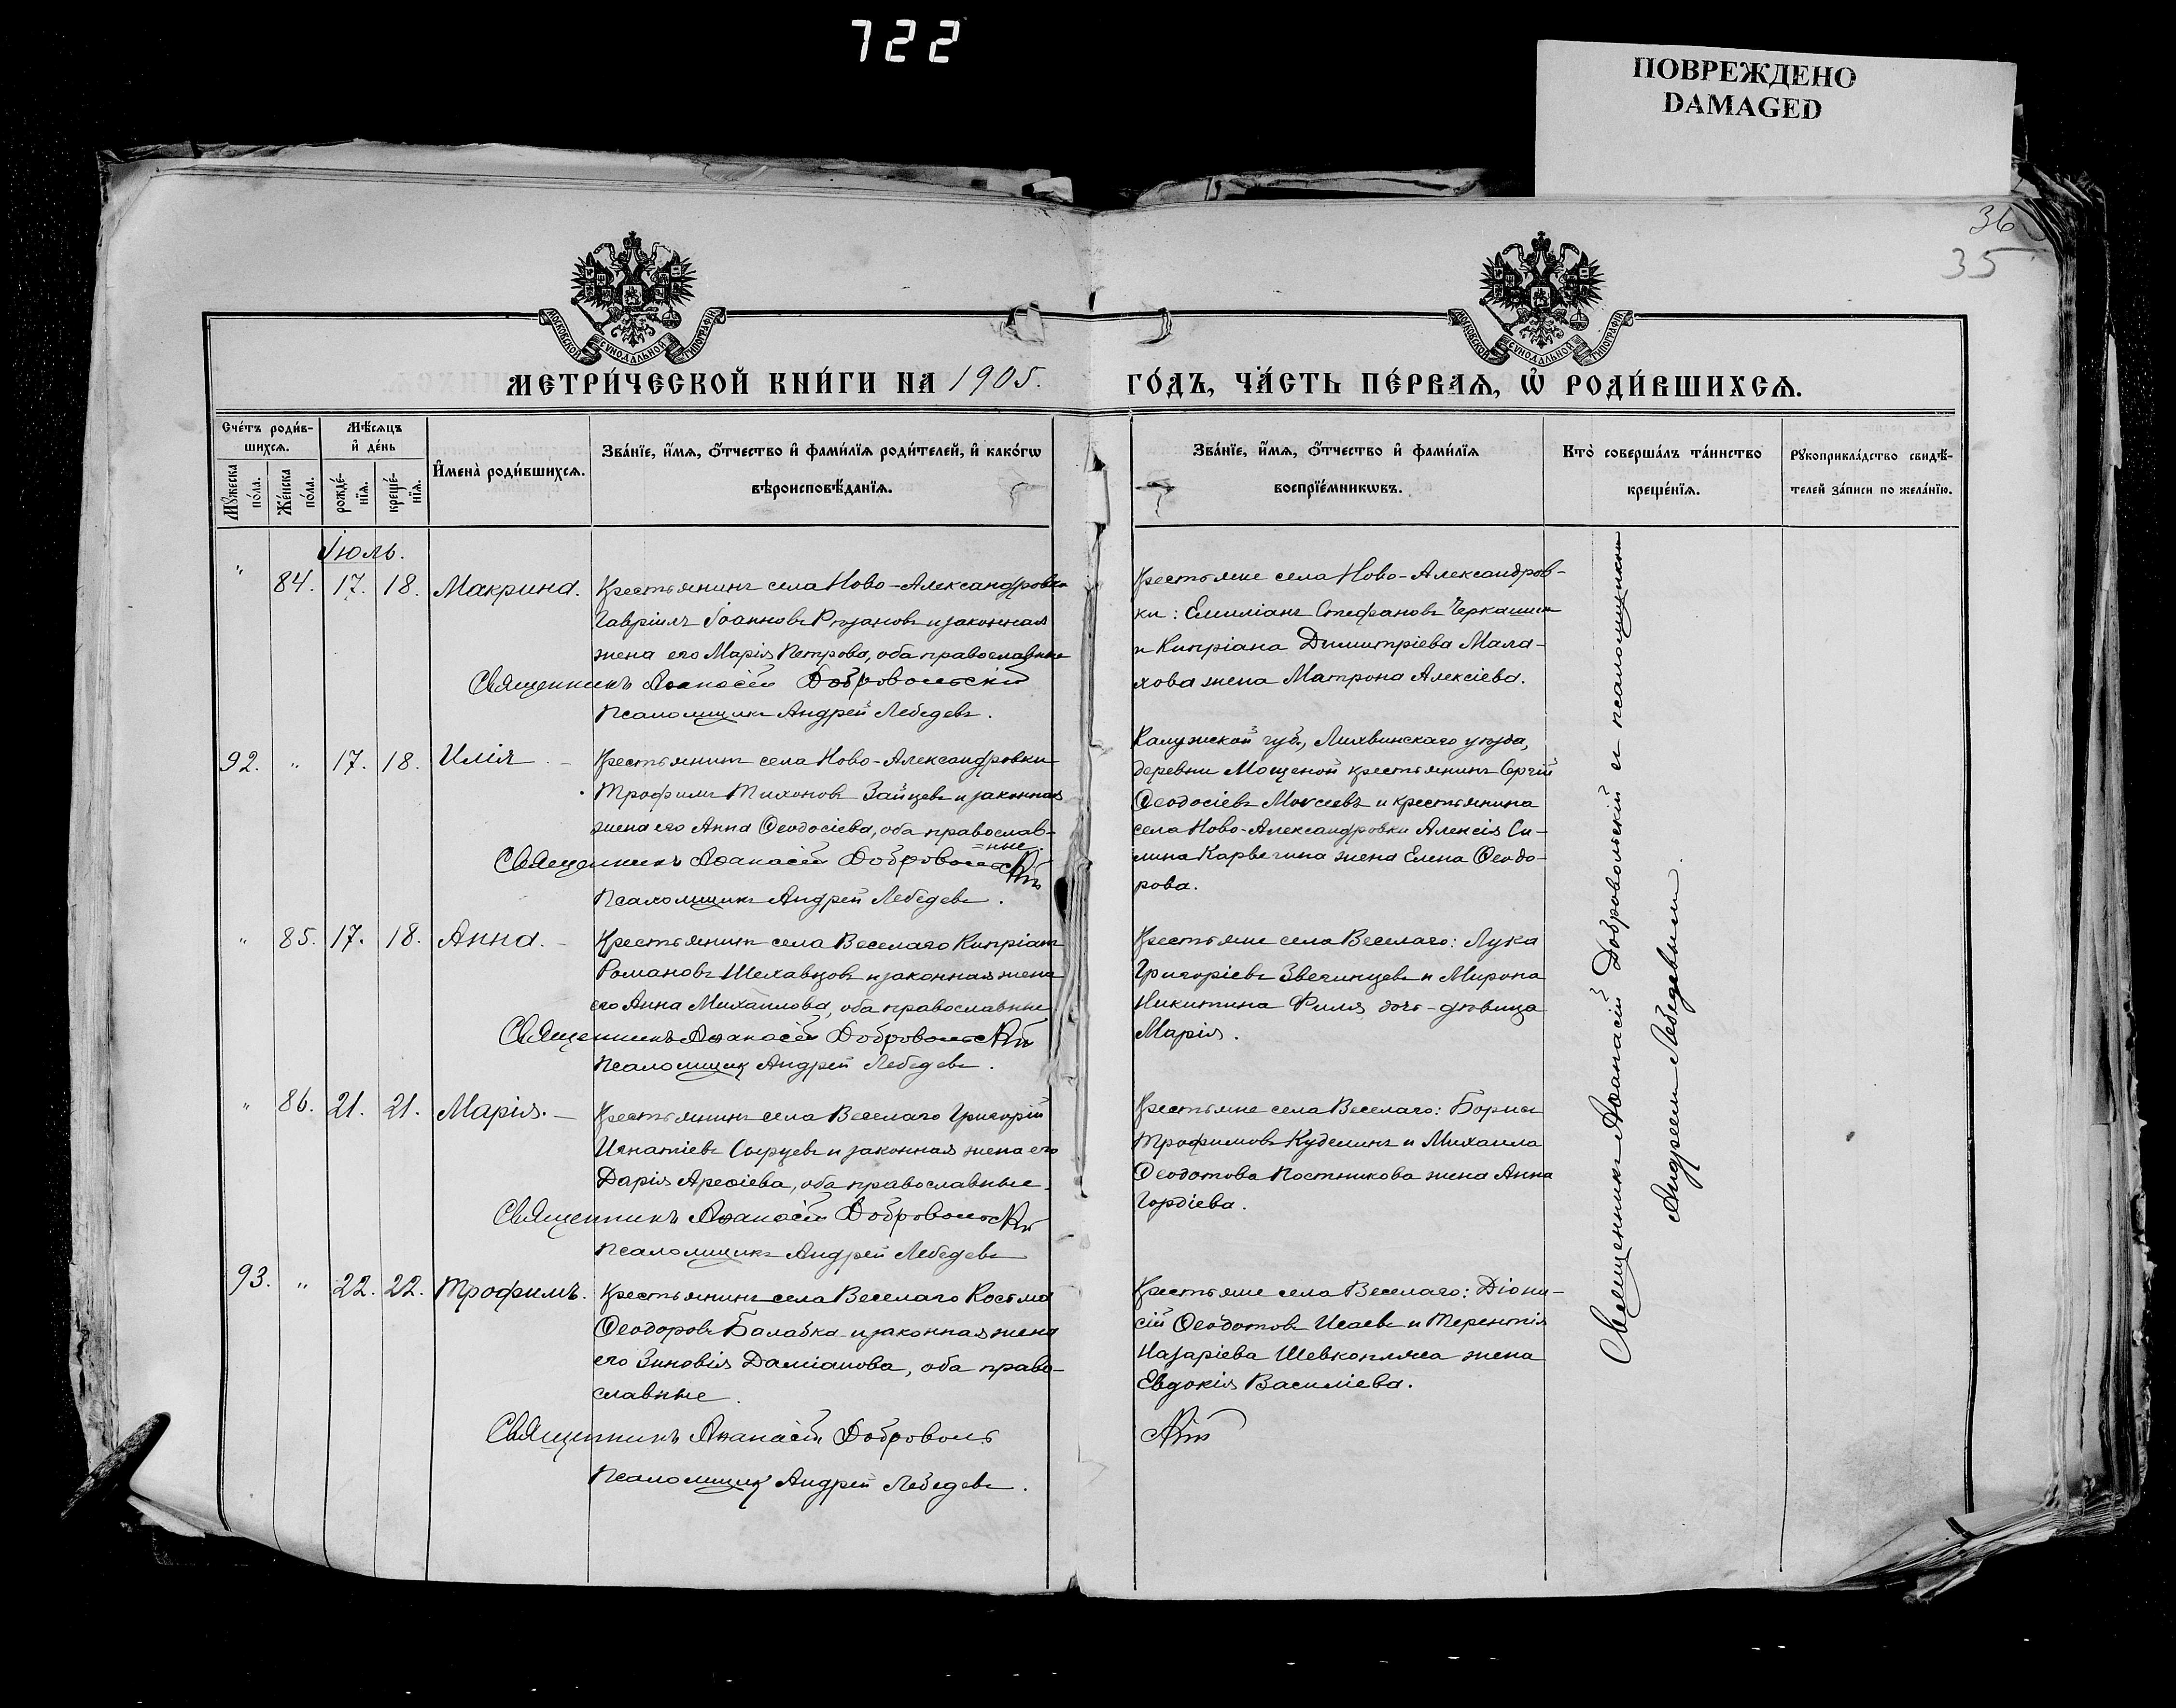 722
ПОВРЕЖДЕНО
DAMAGED
36
35
МОСКОВСКОЙ СѴНОДАЛЬНОЙ ТИПОГРАФІИ
МОСКОВСКОЙ СѴНОДАЛЬНОЙ ТИПОГРАФІИ
МЕТРИ́ЧЕСКОЙ КНИ́ГИ НА 1905.
ГО́ДЪ, ЧА́СТЬ ПЕ́РВАѦ, Ѡ҆ РОДИ́ВШИХСѦ.
Сче́тъ роди́в-
шихсѧ.
Мѣ́сѧцъ
и҆ де́нь
Мꙋ́жеска по́ла.
Же́нска по́ла.
рожде́-
нїѧ.
креще́-
нїѧ.
И҆мена̀ роди́вшихсѧ.
Зва́нїе, и҆́мѧ, ѻ҆́тчество и҆ фами́лїѧ роди́телей, и҆ како́гѡ
вѣроисповѣ́данїѧ.
Зва́нїе, и҆́мѧ, ѻ҆́тчество и҆ фами́лїѧ
воспрїе́мникѡвъ.
Кто̀ соверша́лъ та́инство
креще́нїѧ.
Рꙋкоприкла́дство свидѣ́-
телей за́писи по жела́нїю.
Іюль.
" 84. 17. 18. Макрина. Крестьянинъ села Ново-Александровки
Гавріилъ Іоанновъ Рязановъ и законная
жена его Марія Петрова, оба православные
Священникъ Аѳанасій Добровольскій
Псаломщикъ Андрей Лебедевъ.
Крестьяне села Ново-Александров-
ки: Емиліанъ Стефановъ Черкашин
и Кипріана Димитріева Мала-
хова жена Матрона Алексіева.
92. " 17. 18. Илія. – Крестьянинъ села Ново-Александровки
Трофимъ Тихоновъ Зайцевъ и законная
жена его Анна Ѳеодосіева, оба православ-
=ные.
Священникъ Аѳанасій Добровольскій
Псаломщикъ Андрей Лебедевъ.
Калужской губ., Лихвинскаго уѣзда,
деревни Мощеной крестьянинъ Сергій
Ѳеодосіевъ Моисеевъ и крестьянина
села Ново-Александровки Алексія Си-
лина Карвегина жена Елена Ѳеодо-
рова.
" 85. 17. 18. Анна. – Крестьянинъ села Веселаго Кипріанъ
Романовъ Шехавцовъ и законная жена
его Анна Михаилова, оба православные
Священникъ Аѳанасій Добровольскій
Псаломщикъ Андрей Лебедевъ.
Крестьяне села Веселаго: Лука
Григоріевъ Звегинцевъ и Мирона
Никитина Филя дочь-дѣвица
Марія.
" 86. 21. 21. Марія. – Крестьянинъ села Веселаго Григорій
Игнатіевъ Сырцевъ и законная жена его
Дарія Ареѳіева, оба православные.
Священникъ Аѳанасій Добровольскій
Псаломщикъ Андрей Лебедевъ
Крестьяне села Веселаго: Борисъ
Трофимовъ Куделинъ и Михаила
Ѳеодотова Постникова жена Анна
Гордіева.
93. " 22. 22. Трофимъ. Крестьянинъ села Веселаго Косьма
Ѳеодоровъ Балабка и законная жена
его Зиновія Даміанова, оба право-
славные.
Священникъ Аѳанасій Доброволь
скій
Псаломщикъ Андрей Лебедевъ.
Крестьяне села Веселаго: Діони-
сій Ѳеодотовъ Исаевъ и Терентія
Назаріева Шевкопляса жена
Евдокія Василіева.
Священникъ Аѳанасій Добровольскій съ псаломщикомъ
Андреемъ Лебедевымъ.